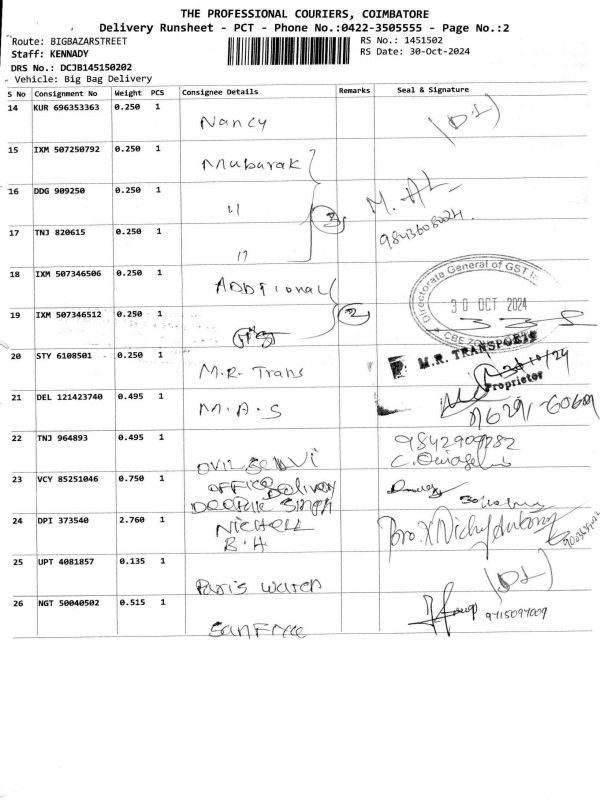 THE PROFESSIONAL COURIERS, COIMBATORE
Delivery Runsheet - PCT - Phone No.:0422-3505555 - Page No.:2
Route: BIGBAZARSTREET
RS No.: 1451502
Staff: KENNADY
RS Date: 30-Oct-2024
DRS No.: DCJB145150202
Vehicle: Big Bag Delivery
S No Consignment No Weight PCS Consignee Details Remarks Seal & Signature
14 KUR 696353363 0.250 1
Nancy
(D.L)
15 IXM 507250792 0.250 1
Mubarak
16 DDG 909250 0.250 1
11
3
9843608024
17 TNJ 820615 0.250 1
11
18 IXM 507346506 0.250 1
ADDTional
2
Directorate General of GST
30 OCT 2024
19 IXM 507346512 0.250 1
M.R. TRANSPORTS
20 STY 6108501 0.250 1
M.R. Trans
Proprietor
21 DEL 121423740 0.495 1
M.A.S
22 TNJ 964893 0.495 1
9842909282
23 VCY 85251046 0.750 1
OFFICE Delivery
Deepak Singh
24 DPI 373540 2.760 1
B.H
25 UPT 4081857 0.135 1
Paris water
(DL)
26 NGT 50040502 0.515 1
9715097009